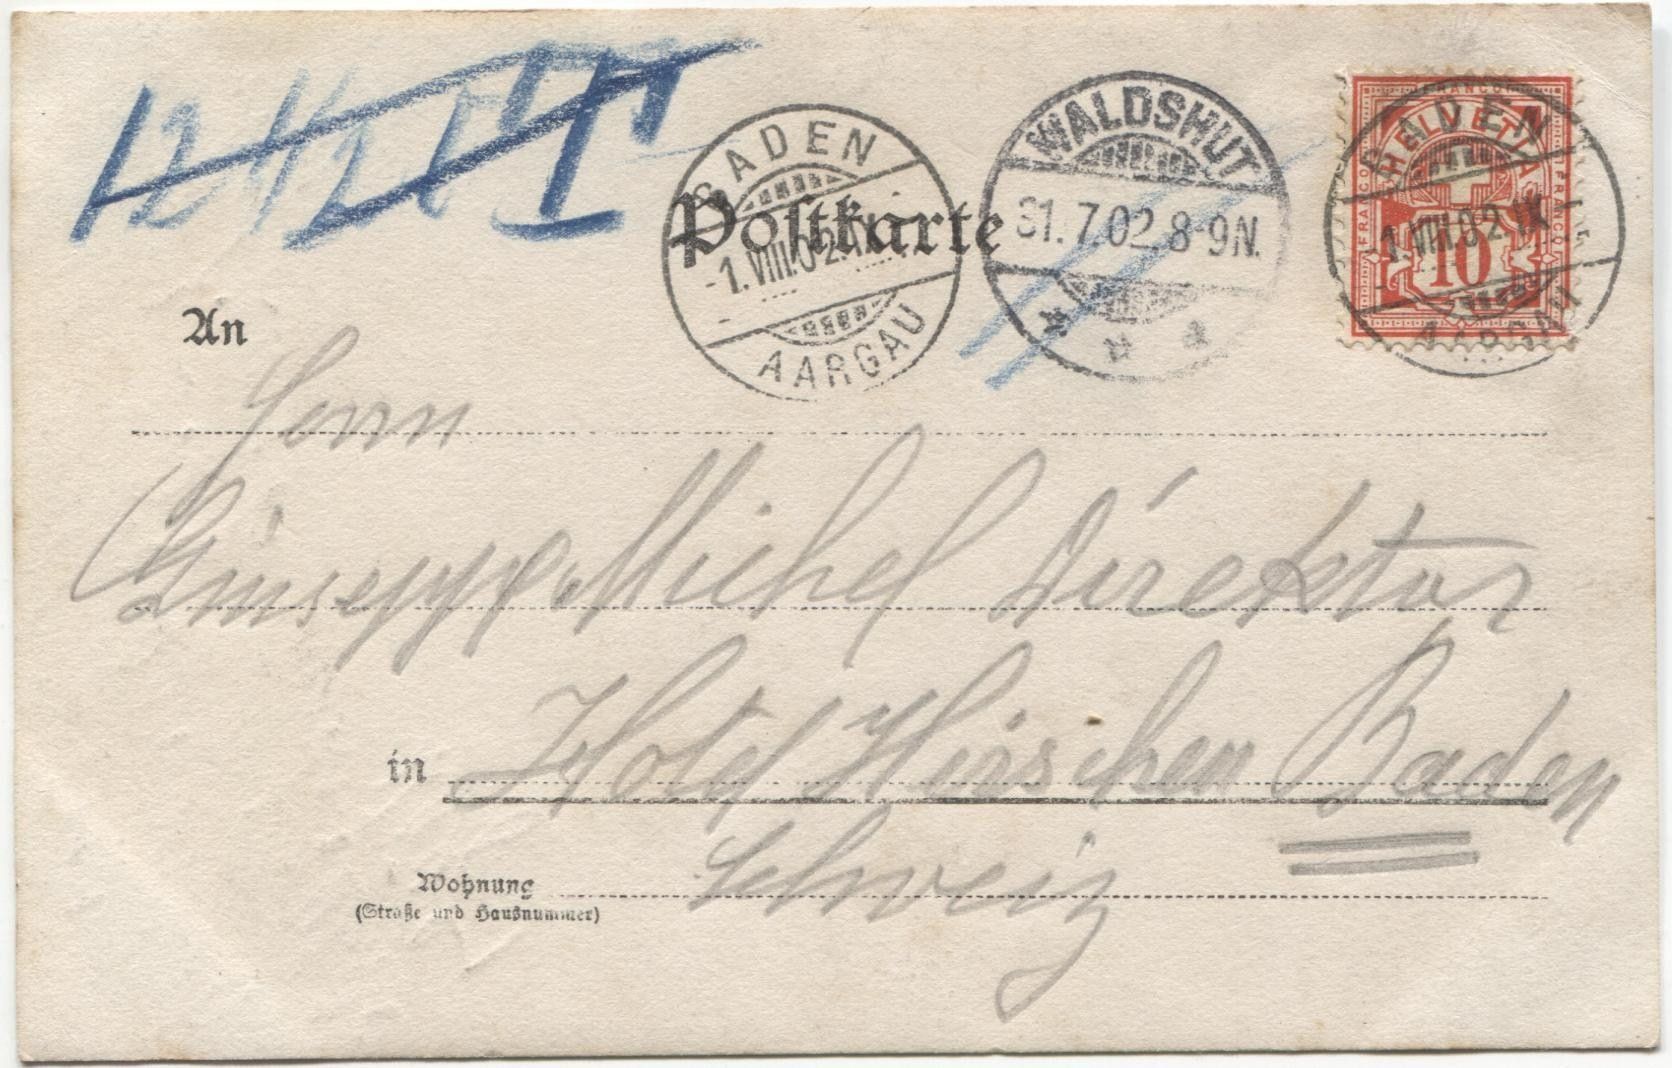 BADEN
-1.VIII.02.
AARGAU
WALDSHUT
31.7.02 8-9N.
FRANCO
FRANCO
FRANCO
HELVETIA
10
BADEN
-1.VIII.02.IX
AARGAU
Postkarte
An
Herrn
Giuseppe Michel Direktor
in Hotel Hirschen Baden
Schweiz
Wohnung
(Straße und Hausnummer)